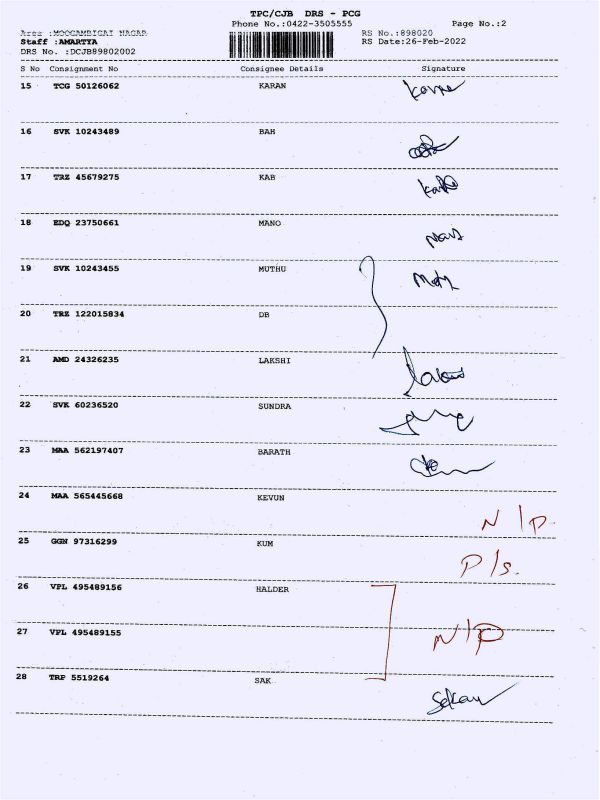 TPC/CJB DRS - PCG
Phone No.:0422-3505555 Page No.:2
Area :MOOGAMBIGAI NAGAR RS No.:898020
Staff :AMARTYA RS Date:26-Feb-2022
DRS No. :DCJB89802002
S No Consignment No Consignee Details Signature
15 TCG 50126062 KARAN
16 SVK 10243489 BAH
17 TRZ 45679275 KAB
18 EDQ 23750661 MANO
19 SVK 10243455 MUTHU
20 TRZ 122015834 DB
21 AMD 24326235 LAKSHI
22 SVK 60236520 SUNDRA
23 MAA 562197407 BARATH
24 MAA 565445668 KEVUN N/P
25 GGN 97316299 KUM P/S.
26 VPL 495489156 HALDER
27 VPL 495489155 N/P
28 TRP 5519264 SAK